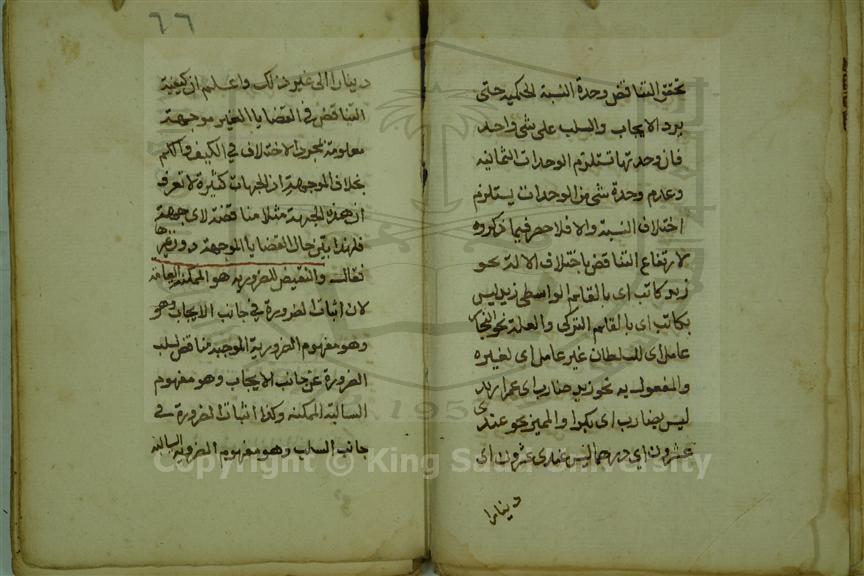 تحقق التناقض وحدة النسبة الحكمية حتى
يرد الايجاب والسلب على شئ واحد
فان وحدتها تستلزم الوحدات الثمانيه
وعدم وحدة شئ من الوحدات يستلزم
اختلاف النسبة والا فلا حصر فيما ذكروه
لارتفاع التناقض باختلاف الالة نحو
زيد كاتب اى بالقلم الواسطى زيد ليس
بكاتب اى بالقلم التركى والعلة نحو النجار
عامل اى للسلطان غير عامل اى لغيره
والمفعول به نحو زيد ضارب اى عمرا زيد
ليس بضارب اى بكرا والمميز نحو عندى
عشرون اى درهما ليس عندى عشرون اى
دينارا
٦٦
دينارا الى غير ذلك واعلم ان كيفية
التناقض فى القضايا الغير موجهة
معلومة بمجرد الاختلاف فى الكيف والكم
بخلاف الموجهة اذ الجهات كثيرة لا تعرف
ان هذه الجهة مثلا مناقضة لاى جهة
فلهذا بين حال القضايا الموجهة دون غيرها
فقال والنقيض للضرورية هو الممكنة العامة
لان اثبات الضرورة فى جانب الايجاب وهو
وهو مفهوم الضرورية الموجبة مناقض لسلب
الضرورة عن جانب الايجاب وهو مفهوم
السالبة الممكنه وكذا اثبات الضرورة فى
جانب السلب وهو مفهوم الضرورية السالبة
Copyright © King Saud University
1957